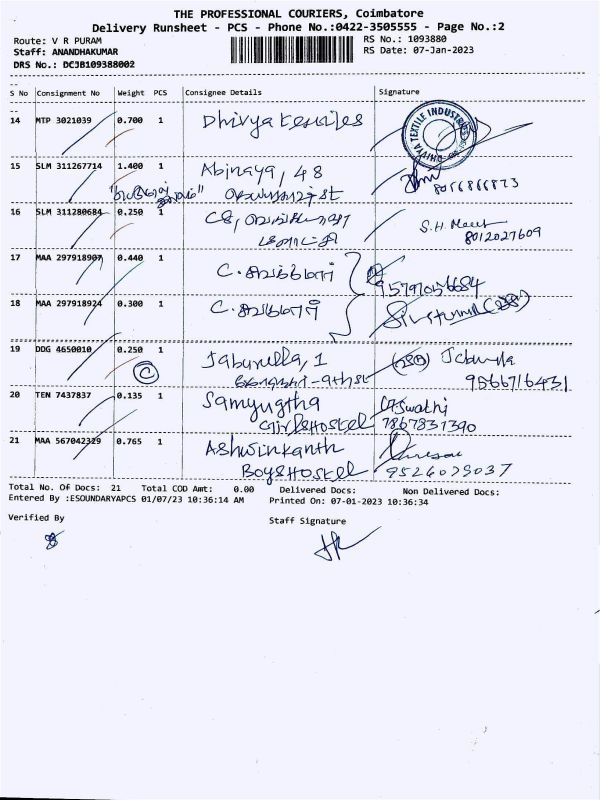 THE PROFESSIONAL COURIERS, Coimbatore
Delivery Runsheet - PCS - Phone No.:0422-3505555 - Page No.:2
Route: V R PURAM
RS No.: 1093880
Staff: ANANDHAKUMAR
RS Date: 07-Jan-2023
DRS No.: DCJB109388002
S No Consignment No Weight PCS Consignee Details Signature
14 MTP 3021039 0.700 1 Dhivya Textiles
DHIVYA TEXTILE INDUSTRIES
15 SLM 311267714 1.400 1 Abinaya, 48
8056866873
16 SLM 311280684 0.250 1 C8,
S.H.
8012027609
17 MAA 297918907 0.440 1 C.
95791056684
18 MAA 297918924 0.300 1 C.
19 DDG 4650010 0.250 1 Jaburulla, 1
C - 9th st
9566716431
20 TEN 7437837 0.135 1 Samyugtha Aswathi
Girls Hostel 7867831390
21 MAA 567042329 0.765 1 Ashwinkanth
Boys Hostel 9526079037
Total No. Of Docs: 21 Total COD Amt: 0.00 Delivered Docs: Non Delivered Docs:
Entered By :ESOUNDARYAPCS 01/07/23 10:36:14 AM Printed On: 07-01-2023 10:36:34
Verified By Staff Signature